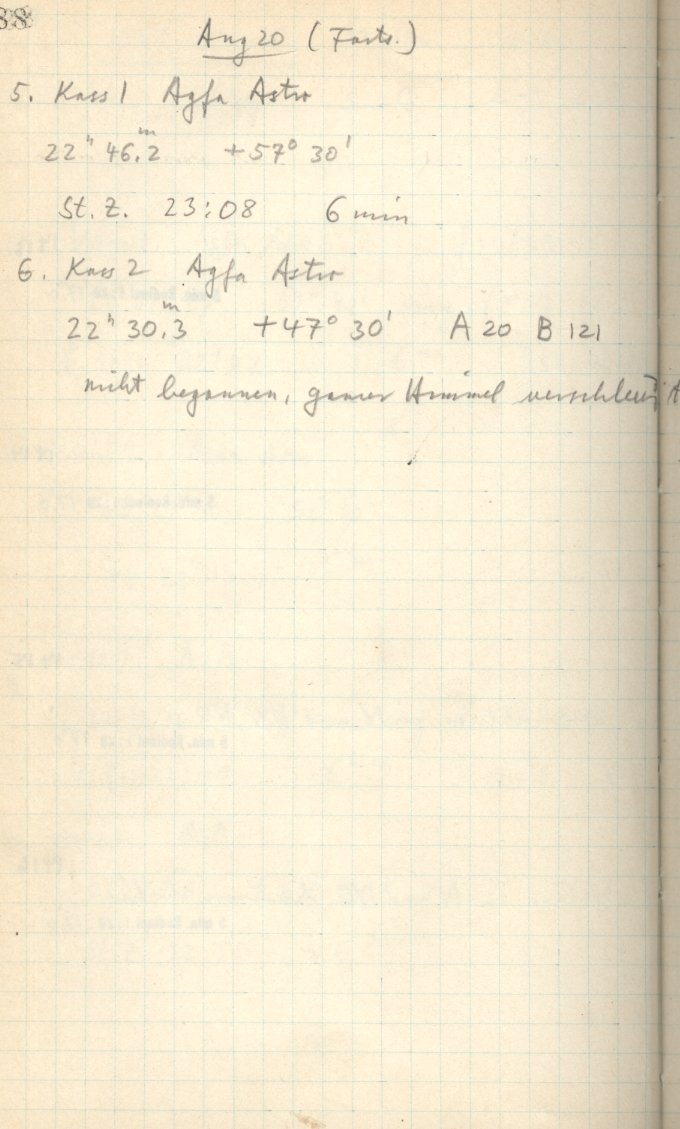 88
Aug 20 (Forts.)
5. Kass 1 Agfa Astro
22ʰ 46.ᵐ2 +57° 30'
St. Z. 23:08 6 min
6. Kass 2 Agfa Astro
22ʰ 30.ᵐ3 +47° 30' A 20 B 121
nicht begonnen, ganzer Himmel verschleiert